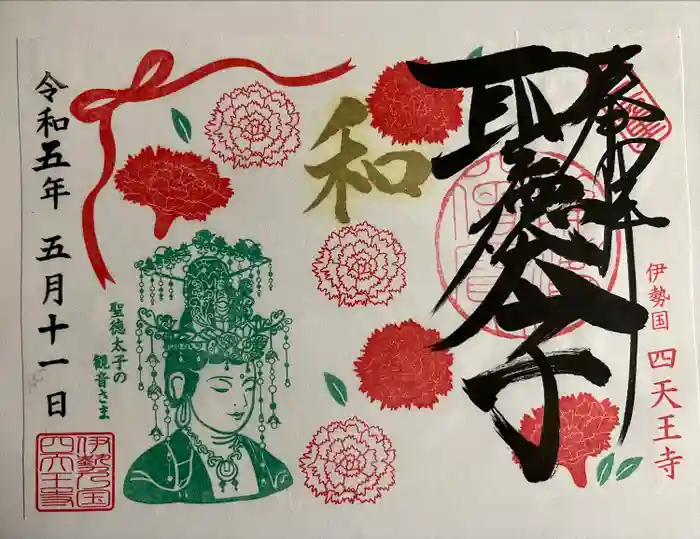 奉拝
聖徳太子
伊勢国 四天王寺
和
聖徳太子の
観音さま
令和五年 五月十一日
伊勢国
四天王寺